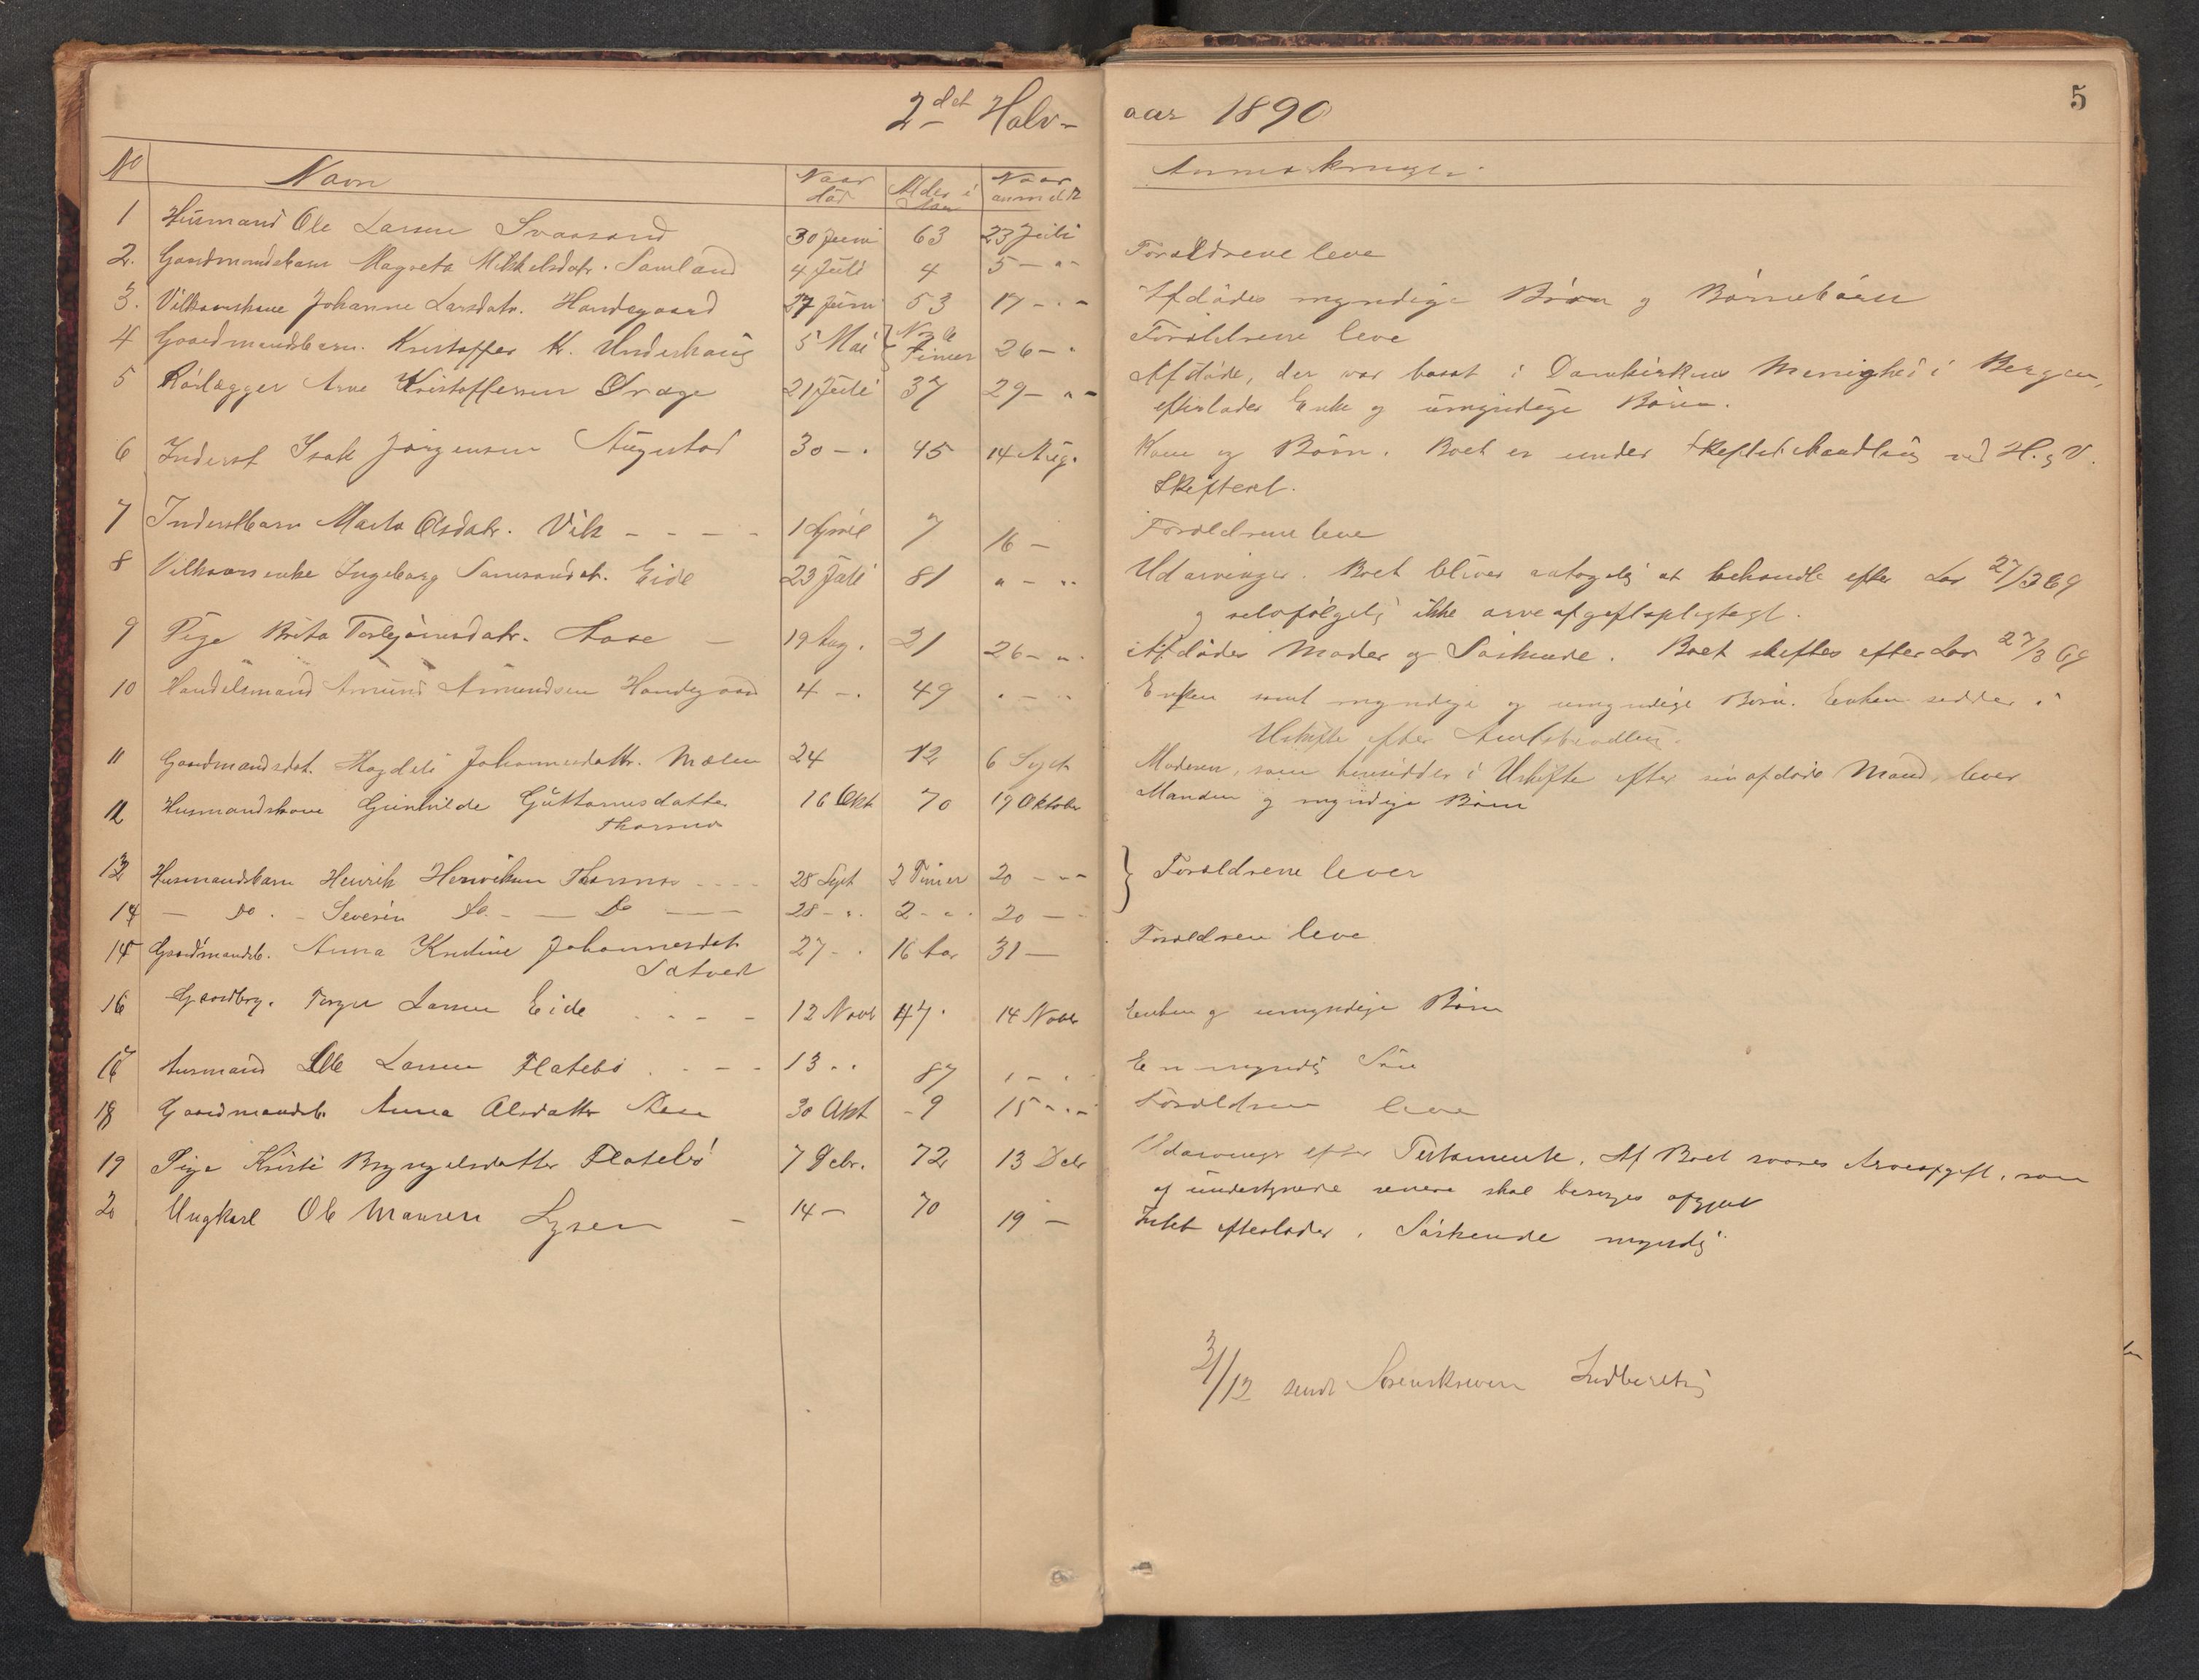 5
2det Halv- aar 1890
No Navn Naar död Alder i Aar Naar anmeldt Anmerkninger
1 Husmand Ole Larsen Svaasand 30 Juni 63 23 Juli
2. Gaardmandsbarn Magreta Mikkelsdatr. Samland 4 Juli 4 5 - " Forældrene leve
3. Vilkaarskone Johanne Larsdatr. Handegaard 27 Juni 53 17 - - Afdödes myndige Börn og Börnebörn
4 Gaardmandsbarn Kristoffer K. Underhaug 5 Mai Nogle Timer 26 - " Forældrene leve
5 Rörlægger Arne Kristoffersen Drage 21 Juli 37 29 - " - Afdöde, der var bosat i Domkirkens Menighed i Bergen,
efterlader Enke og umyndige Börn.
6 Inderst Isak Jörgensen Augestad 30 - . 45 14 Aug. Kone og Börn. Boet er under Skiftebehandling ved H. & V.
Skifteret.
7 Inderstbarn Marta Olsdatr. Vik - - - - 1 April 7 16 - Forældrene leve
8 Vilkaarsenke Ingeborg Samsonsdr. Eide 23 Juli 81 " - " Udarvinger. Boet bliver antagelig at behandle efter Lov 27/3 69
og selvfölgelig ikke arveafgiftspligtigt.
9 Pige Brita Torbjörnsdatr. Aase - 19 Aug. 21 26 - " Afdödes Moder og Söskende. Boet skiftes efter Lov 27/3 69
10 Handelsmand Amund Amundsen Handegaard 4 - . 49 " - " Enken samt myndige og umyndige Börn. Enken sidder i
Uskifte efter Amtsbevilling.
11 Gaardmandsdat. Magdeli Johannesdattr. Mælen 24 12 6 Sept Moderen, som hensidder i Uskifte efter sin afdöde Mand, lever
12 Husmandskone Gunhilde Guttormsdatter 16 Okt 70 19 Oktober Manden og myndige Börn
Thorsnes
13 Husmandsbarn Henrik Henriksen Thorsnes - - - - 28 Sept 2 Timer 20 - - - } Forældrene lever
14 - Do. - Severin Do - - Do - - - 28 - " 2 - " 20 - -
15 Gaardmandsb. Anna Kristine Johannesdat 27 - . 16 Aar 31 - Forældrene leve
Sætvedt
16 Gaardbrg. Torger Larsen Eide . . - - 12 Novbr 47. 14 Novbr Enken og umyndige Börn
17 Husmand Ole Larsen Flatebö . . - - 13 . . 87 " - " En myndig Sön
18 Gaardmandsb. Anna Olsdatter Steen 30 Okt - 9 15 - " - Forældrene leve
19 Pige Kristi Brynjelsdatter Flatebö 7 Decbr. 72 13 Decbr Udarvinger efter Testamente. Af Boet svares Arveafgift, som
af undertegnede senere skal besörges afgjort
20 Ungkarl Ole Monsen Lysen - 14 - 70 19 - Intet efterlader. Söskende myndig
31/12 sendt Sorenskriveren Indberetning